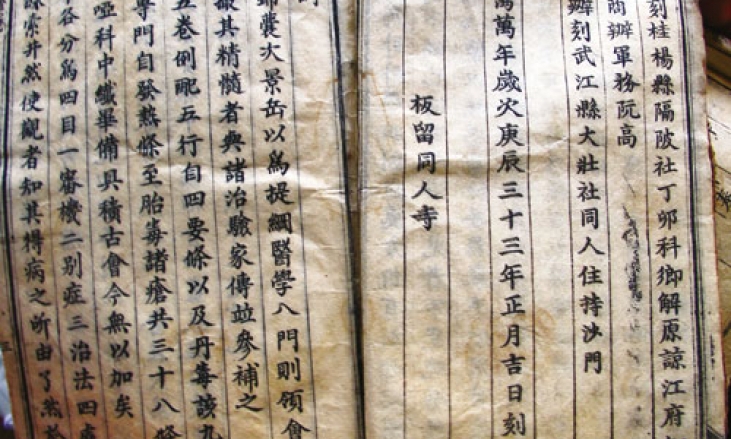 刻桂楊縣隔陂社丁卯科鄉解原諒江府
商辦軍務阮高
辦刻武江縣大壯社同人住持沙門
萬萬年歲次庚辰三十三年正月吉日刻
板留同人寺
錦囊大景岳以爲提綱醫學八門則領會
其精髓者與諸治驗家傳並參補之
五卷例配五行自四要條以及丹毒該九
專門自發熱條至胎毒諸瘡共三十八條
啞科中纖畢備具積古會今無以加矣
各分爲四目一審機二別症三治法四
索井然使觀者知其得病之所由了然於